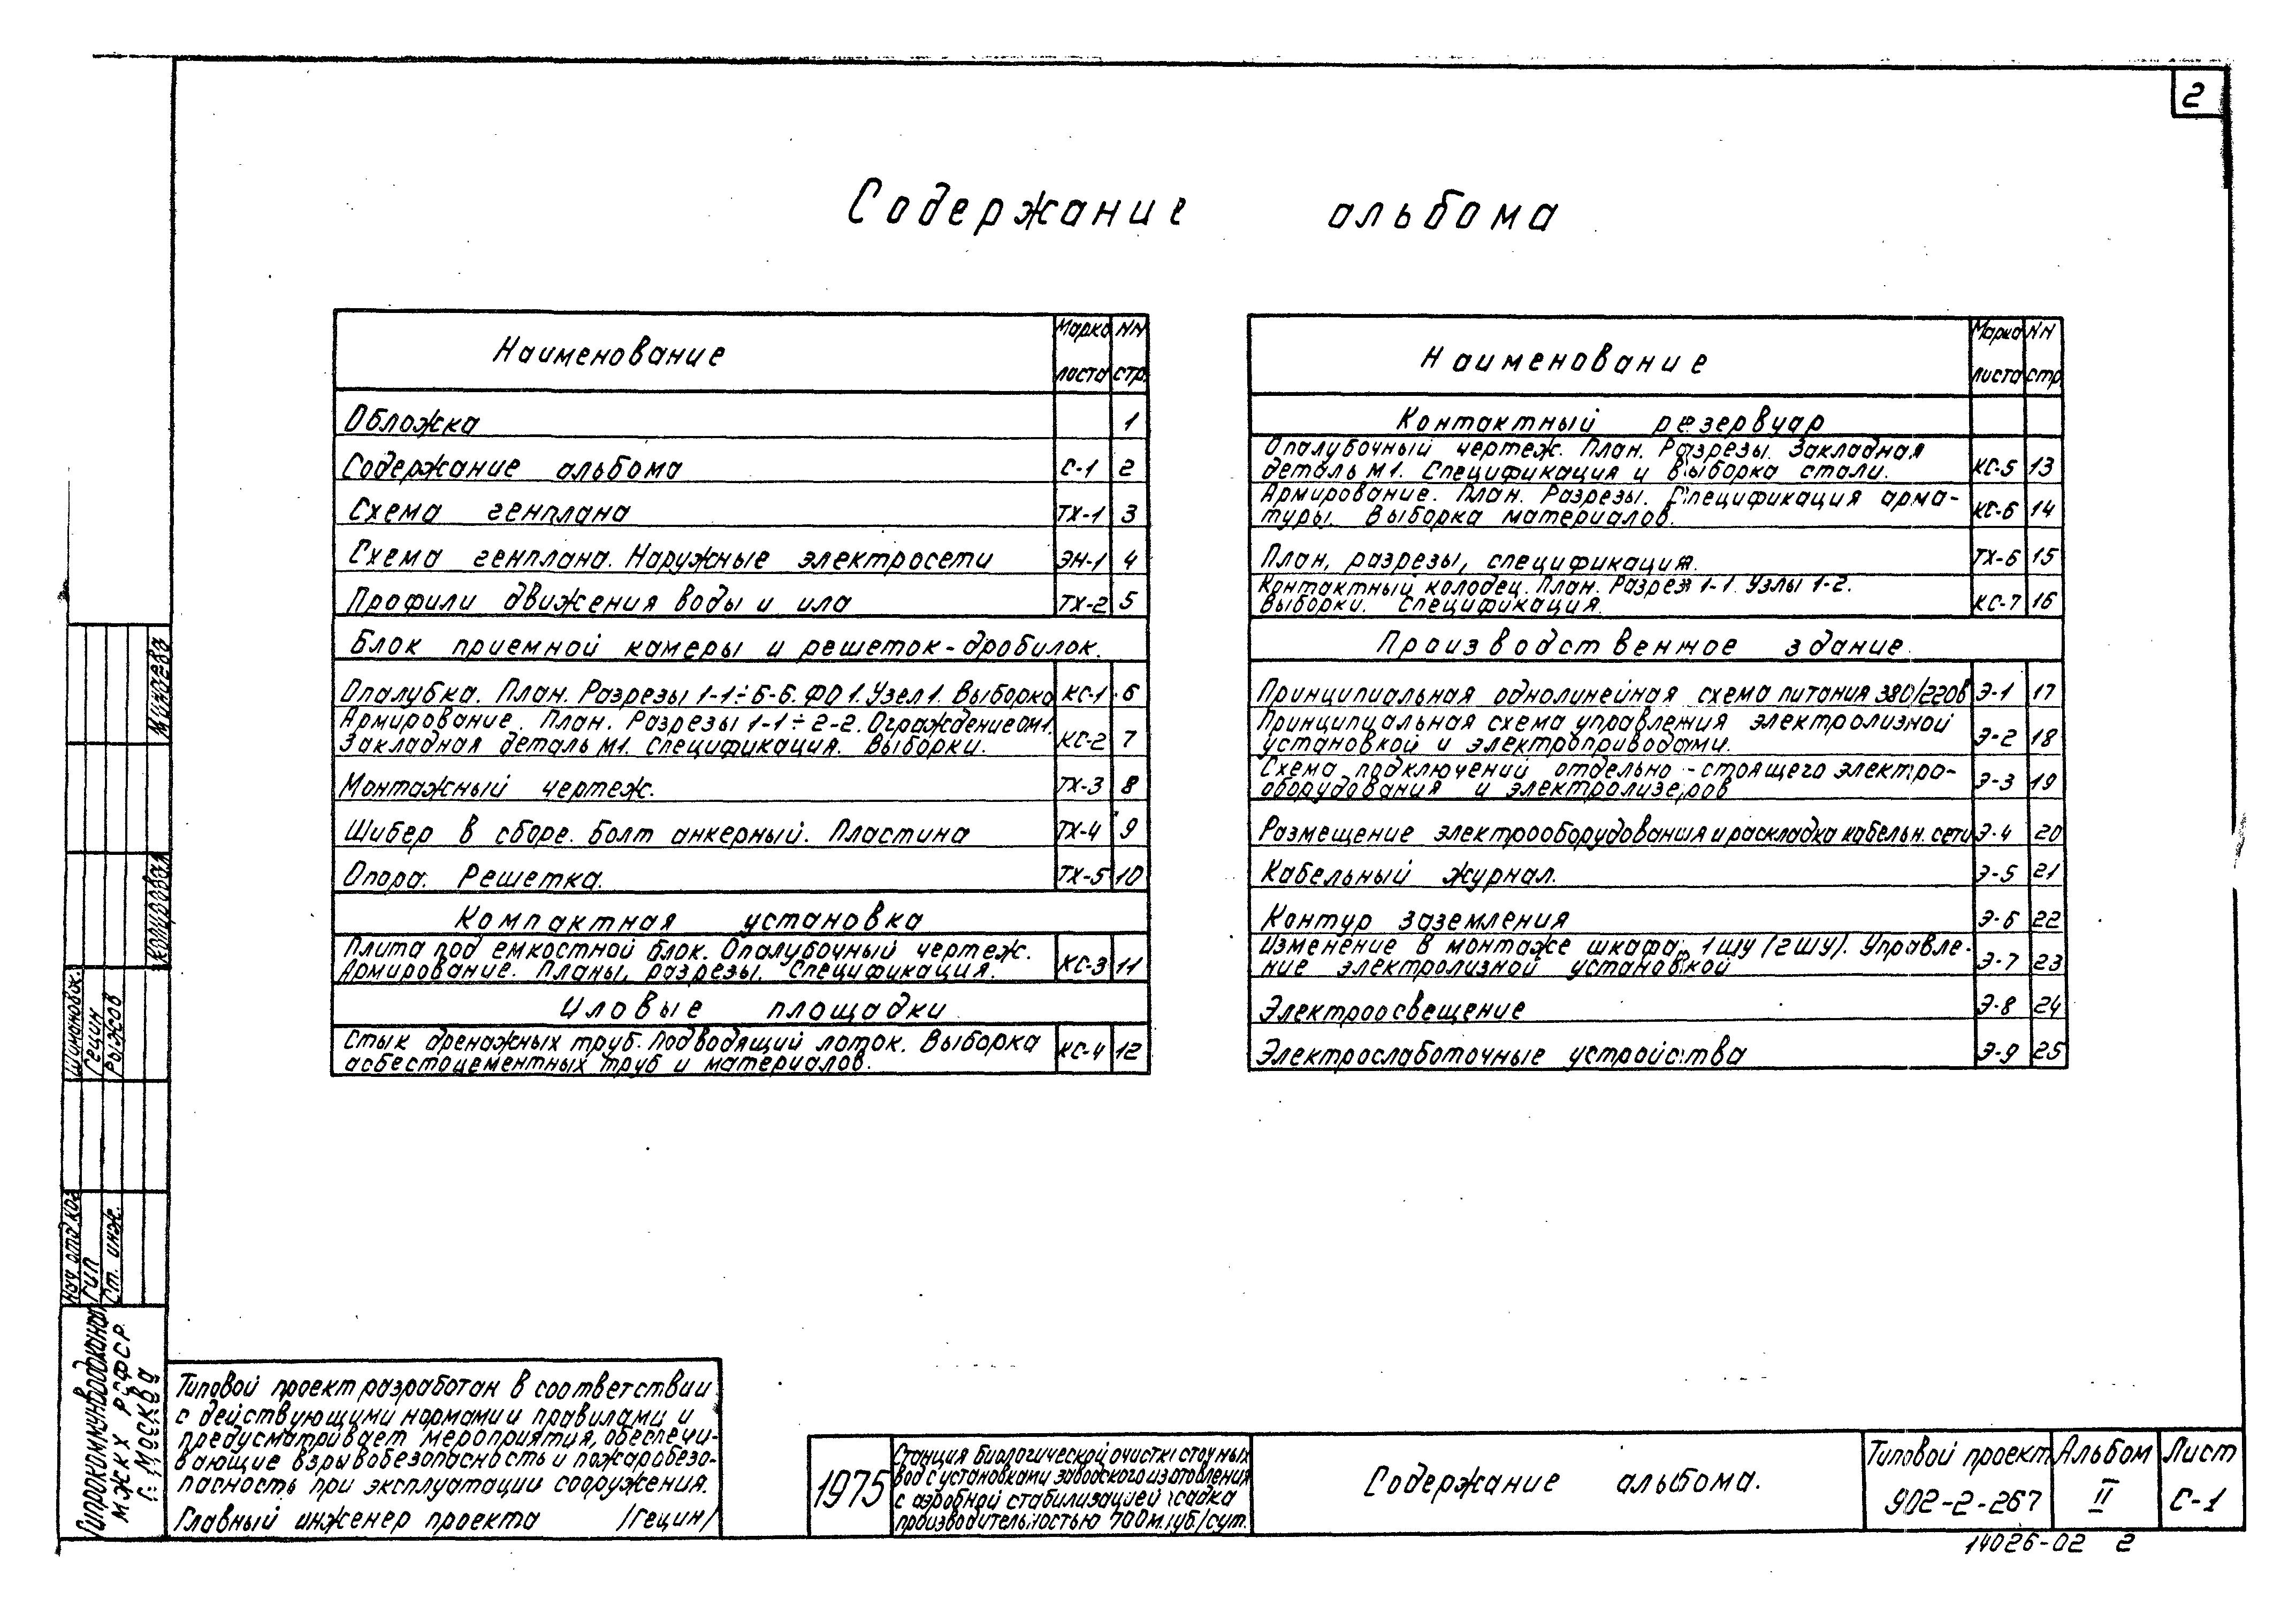 2
Содержание альбома
Наименование Марка листа NN стр.
Обложка 1
Содержание альбома С-1 2
Схема генплана ТХ-1 3
Схема генплана. Наружные электросети ЭН-1 4
Профили движения воды и ила ТХ-2 5
Блок приемной камеры и решеток-дробилок.
Опалубка. План. Разрезы 1-1÷6-6. ФО1. Узел 1. Выборка КС-1 6
Армирование. План. Разрезы 1-1÷2-2. Ограждение ОМ1.
Закладная деталь М1. Спецификация. Выборки. КС-2 7
Монтажный чертеж. ТХ-3 8
Шибер в сборе. Болт анкерный. Пластина ТХ-4 9
Опора. Решетка. ТХ-5 10
Компактная установка
Плита под емкостной блок. Опалубочный чертеж.
Армирование. Планы, разрезы. Спецификация. КС-3 11
Иловые площадки
Стык дренажных труб. Подводящий лоток. Выборка
асбестоцементных труб и материалов. КС-4 12
Наименование Марка листа NN стр.
Контактный резервуар
Опалубочный чертеж. План. Разрезы. Закладная
деталь М1. Спецификация и выборка стали. КС-5 13
Армирование. План. Разрезы. Спецификация арма-
туры. Выборка материалов. КС-6 14
План, разрезы, спецификация. ТХ-6 15
Контактный колодец. План. Разрез 1-1. Узлы 1-2.
Выборки. Спецификация. КС-7 16
Производственное здание.
Принципиальная однолинейная схема питания 380/220в Э-1 17
Принципиальная схема управления электролизной
установкой и электроприводами. Э-2 18
Схема подключений отдельно-стоящего электро-
оборудования и электролизеров Э-3 19
Размещение электрооборудования и раскладка кабельн. сети Э-4 20
Кабельный журнал. Э-5 21
Контур заземления Э-6 22
Изменение в монтаже шкафа 1ШУ (2ШУ). Управле-
ние электролизной установкой Э-7 23
Электроосвещение Э-8 24
Электрослаботочные устройства Э-9 25
Минаева
Копировал
Шимановск.
Гецин
Рыжов
Нач отд кос
ГИП
Ст. инж.
Гипрокоммунводоканал
МЖКХ РСФСР
г. Москва
Типовой проект разработан в соответствии
с действующими нормами и правилами и
предусматривает мероприятия, обеспечи-
вающие взрывобезопасность и пожаробезо-
пасность при эксплуатации сооружения.
Главный инженер проекта /Гецин/
1975
Станция биологической очистки сточных
вод с установками заводского изготовления
с аэробной стабилизацией осадка
производительностью 700м.куб./сут.
Содержание альбома.
Типовой проект
902-2-267
Альбом
II
Лист
С-1
14026-02 2